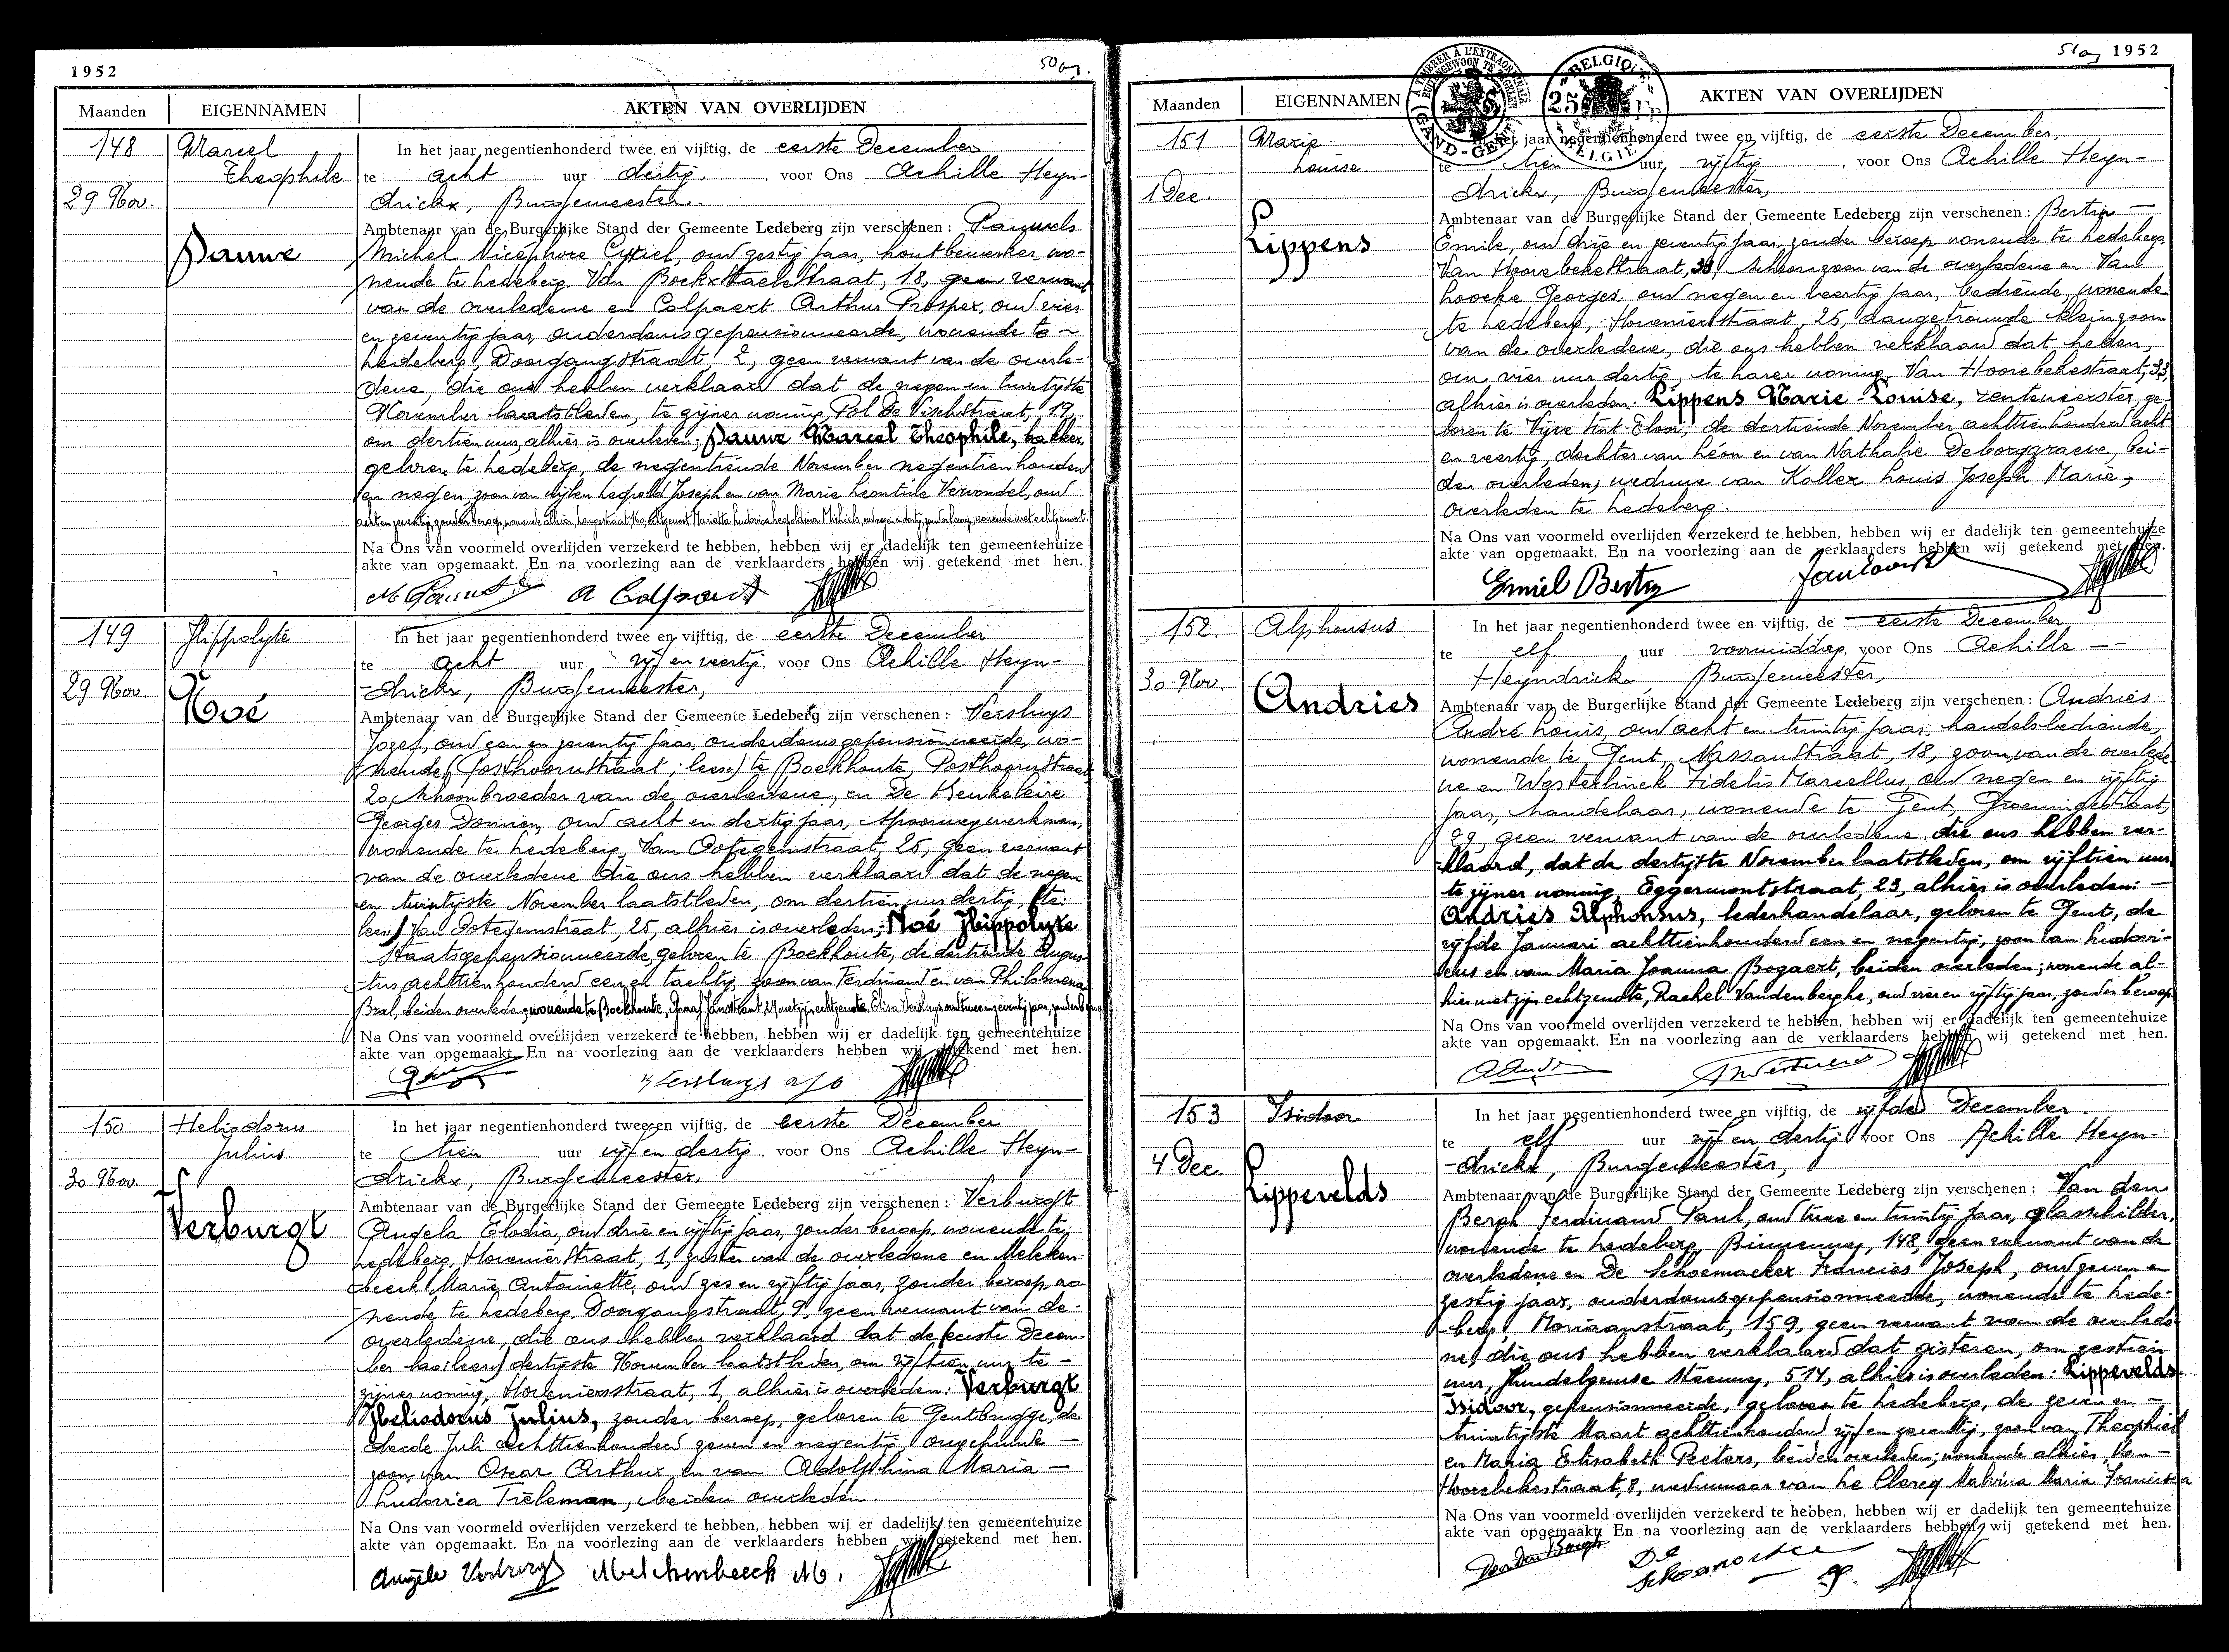 1952
50
Maanden EIGENNAMEN AKTEN VAN OVERLIJDEN
148 Marcel Theophile
29 Nov.
Pauwe
In het jaar negentienhonderd twee en vijftig, de eerste December
te acht uur dertig, voor Ons Achille Heyn-
drickx, Burgemeester.
Ambtenaar van de Burgerlijke Stand der Gemeente Ledeberg zijn verschenen: Pauwels
Michel Nicéphore Cyriel, oud zestig jaar, houtbewerker, wo-
nende te Ledeberg, Van Bockxstaelestraat, 18, geen verwant
van de overledene en Colpaert Arthur Prosper, oud vier
en zeventig jaar, ouderdomsgepensionneerde, wonende te -
Ledeberg, Doorgangstraat, 2, geen verwant van de overle-
dene, die ons hebben verklaard dat de negen en twintigste
November laatstleden, te zijner woning, Pol De Vischstraat, 19,
om dertien uur, alhier is overleden; Pauwe Marcel Theophile, bakker,
geboren te Ledeberg, de negentiende November negentienhonderd
en negen, zoon van wijlen Leopold Joseph en van Marie Leontine Vervondel, oud
acht en zeventig, zonder beroep, wonende alhier, Langestraat, echtgenoot Marietta Ludovica Leopoldina Michiels, oud negen en dertig, zonder beroep, wonende met echtgenoot.
Na Ons van voormeld overlijden verzekerd te hebben, hebben wij er dadelijk ten gemeentehuize
akte van opgemaakt. En na voorlezing aan de verklaarders hebben wij getekend met hen.
A Colpaert
149 Hippolyte
29 Nov.
Noé
In het jaar negentienhonderd twee en vijftig, de eerste December
te acht uur vijf en veertig, voor Ons Achille Heyn-
-drickx, Burgemeester,
Ambtenaar van de Burgerlijke Stand der Gemeente Ledeberg zijn verschenen: Versluys
Jozef, oud een en zeventig jaar, ouderdomsgepensionneerde, wo-
nende (Posthoornstraat; lees) te Boekhoute, Posthoornstraat
20, schoonbroeder van de overledene, en De Keukeleire
Georges Donnien, oud acht en dertig jaar, spoorwegwerkman,
wonende te Ledeberg, Van Ootegemstraat, 25, geen verwant
van de overledene die ons hebben verklaard dat de negen
en twintigste November laatstleden, om dertien uur dertig, (te:
lees) Van Ootegemstraat, 25, alhier is overleden; Noé Hippolyte
Staatsgepensionneerde, geboren te Boekhoute, de dertiende Augus-
tus achttienhonderd een en tachtig, zoon van Ferdinand en van Philomena
Bral, beiden overleden; wonende te Boekhoute, Graaf Janstraat, 24, met zijn echtgenote, Elisa Versluys, oud twee en zeventig jaar, zonder beroep
Na Ons van voormeld overlijden verzekerd te hebben, hebben wij er dadelijk ten gemeentehuize
akte van opgemaakt. En na voorlezing aan de verklaarders hebben wij getekend met hen.
150 Heliodorus Julius
30 Nov
Verburgt
In het jaar negentienhonderd twee en vijftig, de eerste December
te tien uur vijf en dertig, voor Ons Achille Heyn-
drickx, Burgemeester,
Ambtenaar van de Burgerlijke Stand der Gemeente Ledeberg zijn verschenen: Verburgt
Angela Elodia, oud drie en vijftig jaar, zonder beroep, wonende te
Ledeberg, Hovenierstraat, 1, zuster van de overledene en Melcken-
beeck Marie Antoinette, oud zes en vijftig jaar, zonder beroep, wo-
nende te Ledeberg, Doorgangstraat, 9, geen verwant van de-
overledene, die ons hebben verklaard dat de (eerste Decem-
ber lees) dertigste November laatstleden, om vijftien uur te -
zijner woning, Hoveniersstraat, 1, alhier is overleden: Verburgt
Heliodorus Julius, zonder beroep, geboren te Gentbrugge, de
derde Juli achttienhonderd zeven en negentig, ongehuwde -
zoon van Oscar Arthur en van Adolphina Maria -
Ludovica Tieleman, beiden overleden.
Na Ons van voormeld overlijden verzekerd te hebben, hebben wij er dadelijk ten gemeentehuize
akte van opgemaakt. En na voorlezing aan de verklaarders hebben wij getekend met hen.
Angèle Verburgt Melckenbeeck M.
51 1952
A TIMBRER A L'EXTRAORDINAIRE
BUITENGEWOON TE ZEGELEN
GAND-GENT
BELGIQUE
25 Fr
BELGIE
Maanden EIGENNAMEN AKTEN VAN OVERLIJDEN
151 Marie Louise
1 Dec.
Lippens
In het jaar negentienhonderd twee en vijftig, de eerste December,
te tien uur, vijftig, voor Ons Achille Heyn-
drickx, Burgemeester,
Ambtenaar van de Burgerlijke Stand der Gemeente Ledeberg zijn verschenen: Bertin -
Emile, oud drie en zeventig jaar, zonder beroep wonende te Ledeberg,
Van Hoorebekestraat, 33, schoonzoon van de overledene en Van
Loocke Georges, oud negen en veertig jaar, bediende, wonende
te Ledeberg, Hovenierstraat, 25, aangetrouwde kleinzoon
van de overledene, die ons hebben verklaard dat heden,
om vier uur dertig, te harer woning, Van Hoorebekestraat, 33,
alhier is overleden: Lippens Marie Louise, rentenierster, ge-
boren te Vijve Sint-Elooi, de dertiende November achttienhonderd acht
en veertig, dochter van Léon en van Nathalie Deborggraeve, bei-
den overleden, weduwe van Koller Louis Joseph Marie,
overleden te Ledeberg.
Na Ons van voormeld overlijden verzekerd te hebben, hebben wij er dadelijk ten gemeentehuize
akte van opgemaakt. En na voorlezing aan de verklaarders hebben wij getekend met hen.
Emiel Bertin
152. Alphonsus
30 Nov.
Andries
In het jaar negentienhonderd twee en vijftig, de eerste December,
te elf uur voormiddag, voor Ons Achille --
Heyndrickx, Burgemeester,
Ambtenaar van de Burgerlijke Stand der Gemeente Ledeberg zijn verschenen: Andries
André Louis, oud acht en twintig jaar, handelsbediende,
wonende te Gent, Nassaustraat, 18, zoon van de overlede-
ne en Westerlinck Fidelis Marcellus, oud negen en vijftig
jaar, handelaar, wonende te Gent, Groeningestraat,
29, geen verwant van de overledene, die ons hebben ver-
klaard, dat de dertigste November laatstleden, om vijftien uur
te zijner woning, Eggermontstraat, 23, alhier is overleden: -
Andries Alphonsus, lederhandelaar, geboren te Gent, de
vijfde Januari achttienhonderd een en negentig, zoon van Ludovi-
cus en van Maria Joanna Bogaert, beiden overleden; wonende al-
hier met zijn echtgenote, Rachel Vandenberghe, oud vier en vijftig jaar, zonder beroep.
Na Ons van voormeld overlijden verzekerd te hebben, hebben wij er dadelijk ten gemeentehuize
akte van opgemaakt. En na voorlezing aan de verklaarders hebben wij getekend met hen.
153 Isidoor
4 Dec.
Lippevelds
In het jaar negentienhonderd twee en vijftig, de vijfde December.
te elf uur vijf en dertig voor Ons Achille Heyn-
-drickx, Burgemeester,
Ambtenaar van de Burgerlijke Stand der Gemeente Ledeberg zijn verschenen: Van den
Bergh Ferdinand Paul, oud twee en twintig jaar, glasschilder,
wonende te Ledeberg, Binnenweg, 148, geen verwant van de
overledene en De Schoemaeker Francies Joseph, oud zeven en
zestig jaar, ouderdomsgepensionneerde, wonende te Lede-
berg, Moriaanstraat, 159, geen verwant van de overlede-
ne, die ons hebben verklaard dat gisteren, om zestien
uur, Hundelgemse Steenweg, 514, alhier is overleden: Lippevelds
Isidoor, gepensionneerde, geboren te Ledeberg, de zeven en -
twintigste Maart achttienhonderd vijf en zeventig, zoon van Theophiel
en Maria Elisabeth Peeters, beiden overleden; wonende alhier, Van -
Hoorebekestraat, 8, weduwnaar van Le Clercq Malvina Maria Francisca
Na Ons van voormeld overlijden verzekerd te hebben, hebben wij er dadelijk ten gemeentehuize
akte van opgemaakt. En na voorlezing aan de verklaarders hebben wij getekend met hen.
Van Den Bergh De Schoemaeker